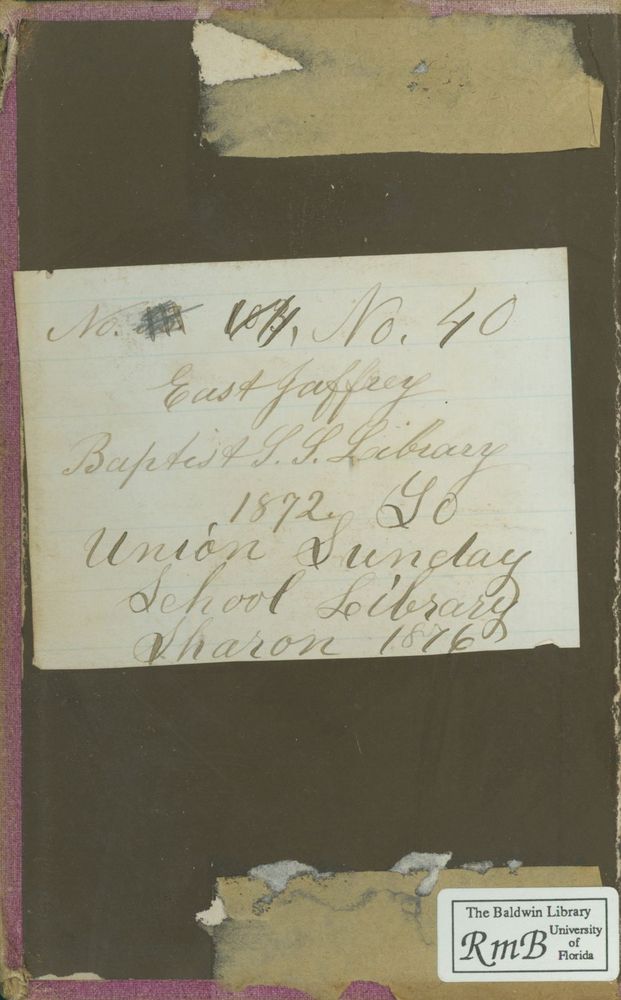 No. 104, No. 40
East Jaffrey
Baptist S. S. Library
1872. To
Union Sunday
School Library
Sharon 1876
The Baldwin Library
RmB University
of
Florida